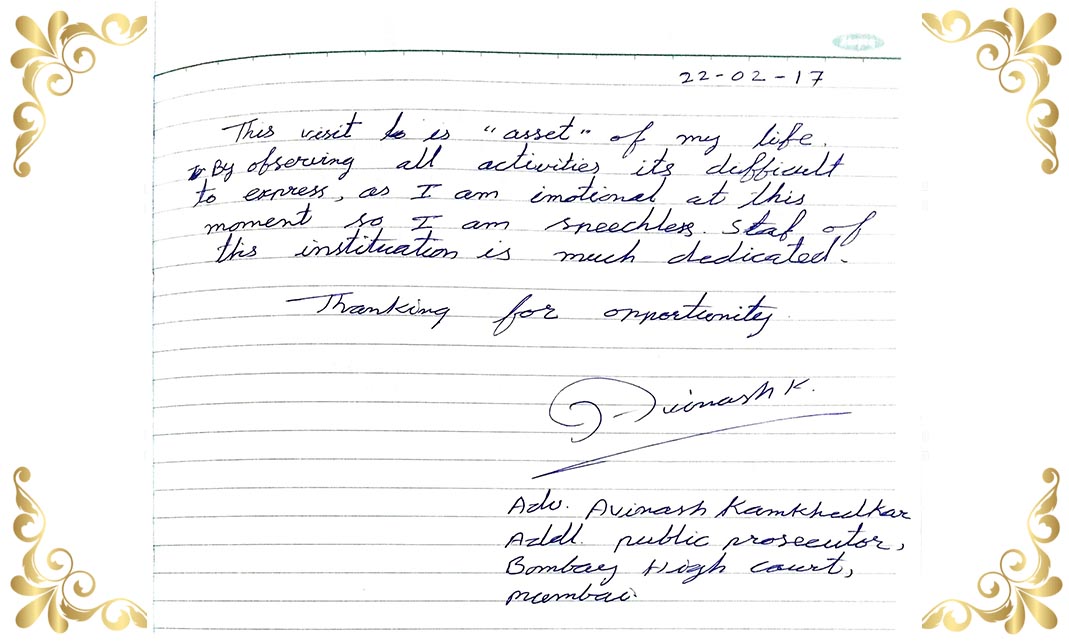 22-02-17
This visit is "asset" of my life.
By observing all activities its defficult
to express, as I am imotional at this
moment so I am speechless. Staf of
this instituation is much dedicated.
Thanking for opportunity
Avinash K.
Adv. Avinash Kamkhedkar
Addl. public prosecutor,
Bombay High court,
mumbai.